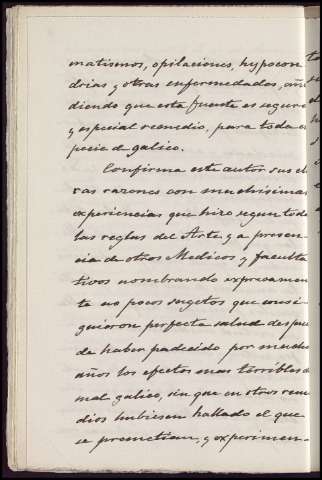 matismos, opilaciones, hypocon
drias, y otras enfermedades, aña
diendo que esta fuente es seguro
y especial remedio, para toda es
pecie de galico.
Confirma este autor sus cla
ras razones con muchisimas
experiencias que hizo segun todas
las reglas del Arte, y a presen-
cia de otros Medicos y faculta
tivos nombrando expresamen
te no pocos sugetos que consi-
guieron perfecta salud despues
de haber padecido por muchos
años los efectos mas terribles del
mal galico, sin que en otros reme
dios hubiesen hallado el que
se prometian, y experimen-